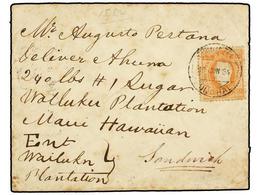 Mr Augusto Pestana
Deliver Ahuna
240 lbs #1 Sugar
Walluker Plantation
Maui Hawaiian
Ent
Wailuku
Sandwich
Plantation